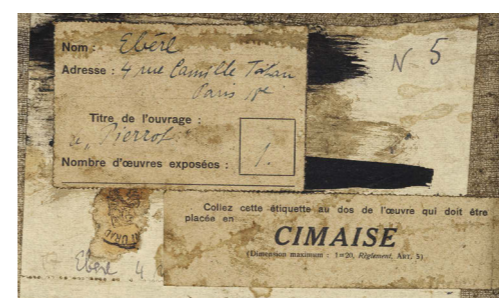 Nom : Eberl
Adresse : 4 rue Camille Tahan
Paris
Titre de l'ouvrage :
"Pierrot"
Nombre d'œuvres exposées : 1.
N 5
Collez cette étiquette au dos de l'œuvre qui doit être
placée en
CIMAISE
(Dimension maximum : 1m20, Règlement, ART. 5)
Eberl 4